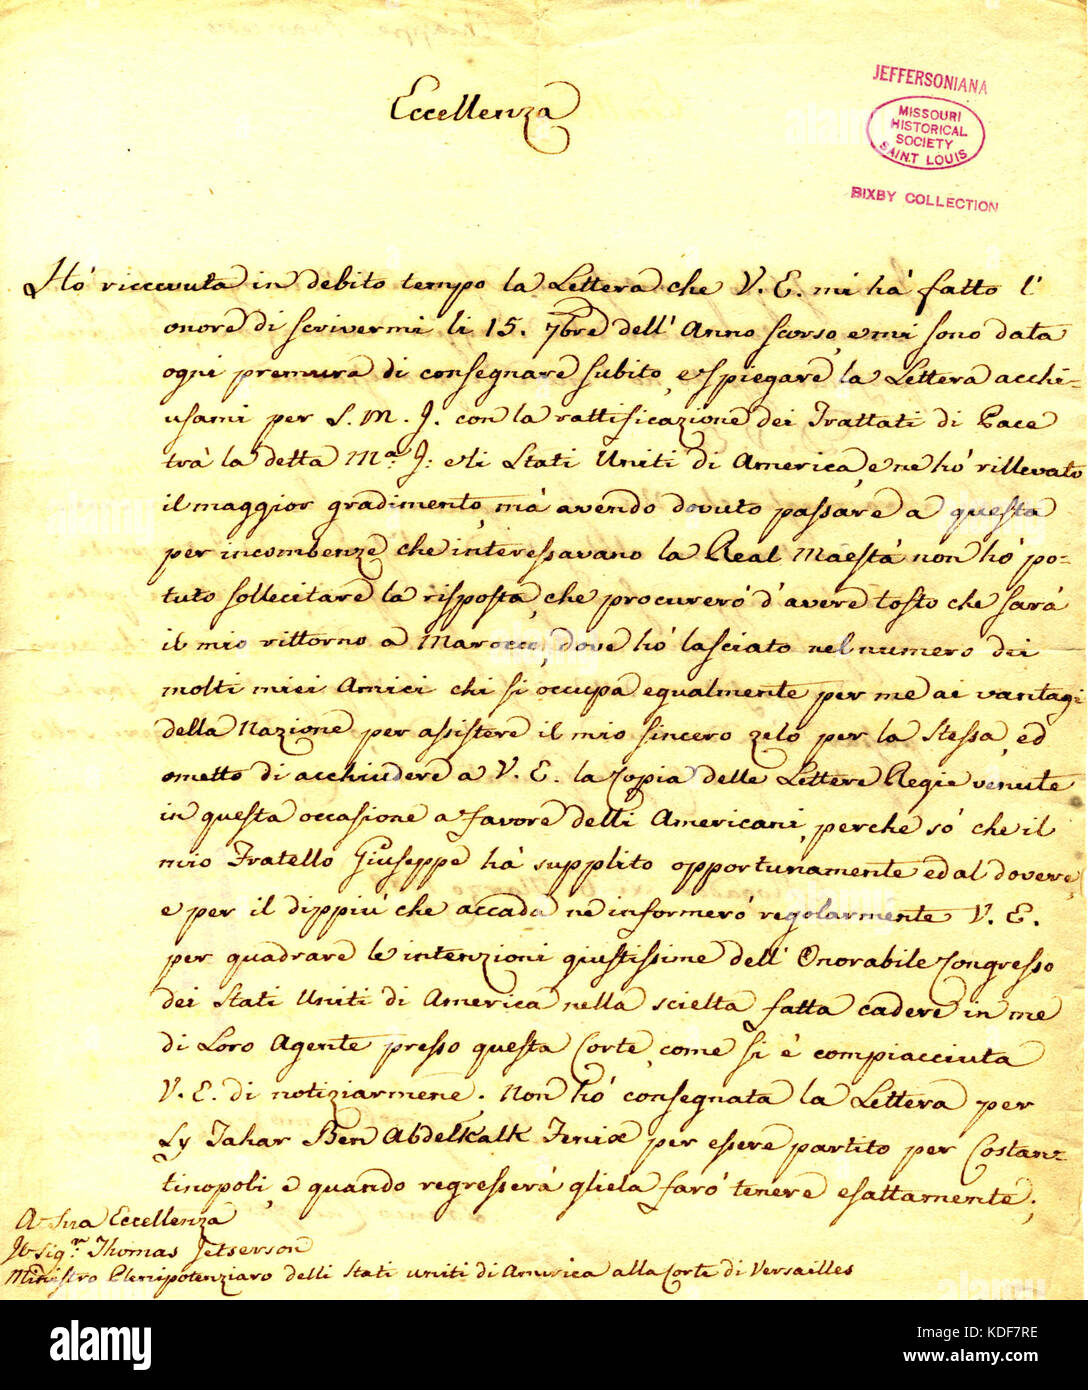 Eccellenza
JEFFERSONIANA
MISSOURI
HISTORICAL
SOCIETY
SAINT LOUIS
BIXBY COLLECTION
Hò riccevuta in debito tempo la Lettera che V. E. mi hà fatto l'
onore di scrivermi li 15. 7bre dell' Anno scorso, e mi sono data
ogni premura di consegnare subito, e spiegare la Lettera acchi-
usami per S. M. I. con la rattificazione dei Trattati di Pace
trà la detta Ma. I: e li Stati Uniti di America, e ne hò rillevato
il maggior gradimento, mà avendo dovuto passare a questa
per incombenze che interessavano la Real Maestà non hò po-
tuto sollecitare la risposta, che procurerò d'avere tosto che sarà
il mio rittorno a Marocco, dove hò lasciato nel numero dei
molti miei Amici chi si occupa egualmente per me ai vantagi
della Nazione per assistere il mio sincero zelo per la Stessa, ed
ometto di acchiudere a V. E. la Copia delle Lettere Regie venute
in questa occasione a favore delli Americani, perche sò che il
mio Fratello Giuseppe hà supplito opportunamente ed al dovere,
e per il dippiù che accada ne informerò regolarmente V. E.
per quadrare le intenzioni giustissime dell' Onorabile Congresso
dei Stati Uniti di America nella scielta fatta cadere in me
di Loro Agente presso questa Corte, come si è compiacciuta
V. E. di notiziarmene. Non hò consegnata la Lettera per
Sy Tahar Ben Abdelkalk Fenix per essere partito per Costant-
tinopoli, e quando regresserà gliela farò tenere esattamente;
A Sua Eccellenza
Il Sigr. Thomas Jefserson
Ministro Plenipotenziaro delli Stati Uniti di America alla Corte di Versailles
alamy
Image ID: KDF7RE
www.alamy.com